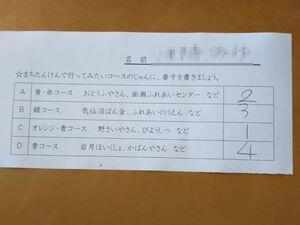 名前
☆まちたんけんで行ってみたいコースのじゅんに、番号を書きましょう。
A 黄・赤コース おとうふやさん、面瀬ふれあいセンター など 2
B 緑コース 気仙沼ばん金、ふれあいのうえん など 3
C オレンジ・青コース 野さいやさん、びようしつ など 1
D 青コース 岩月ほいくしょ、かばんやさん など 4